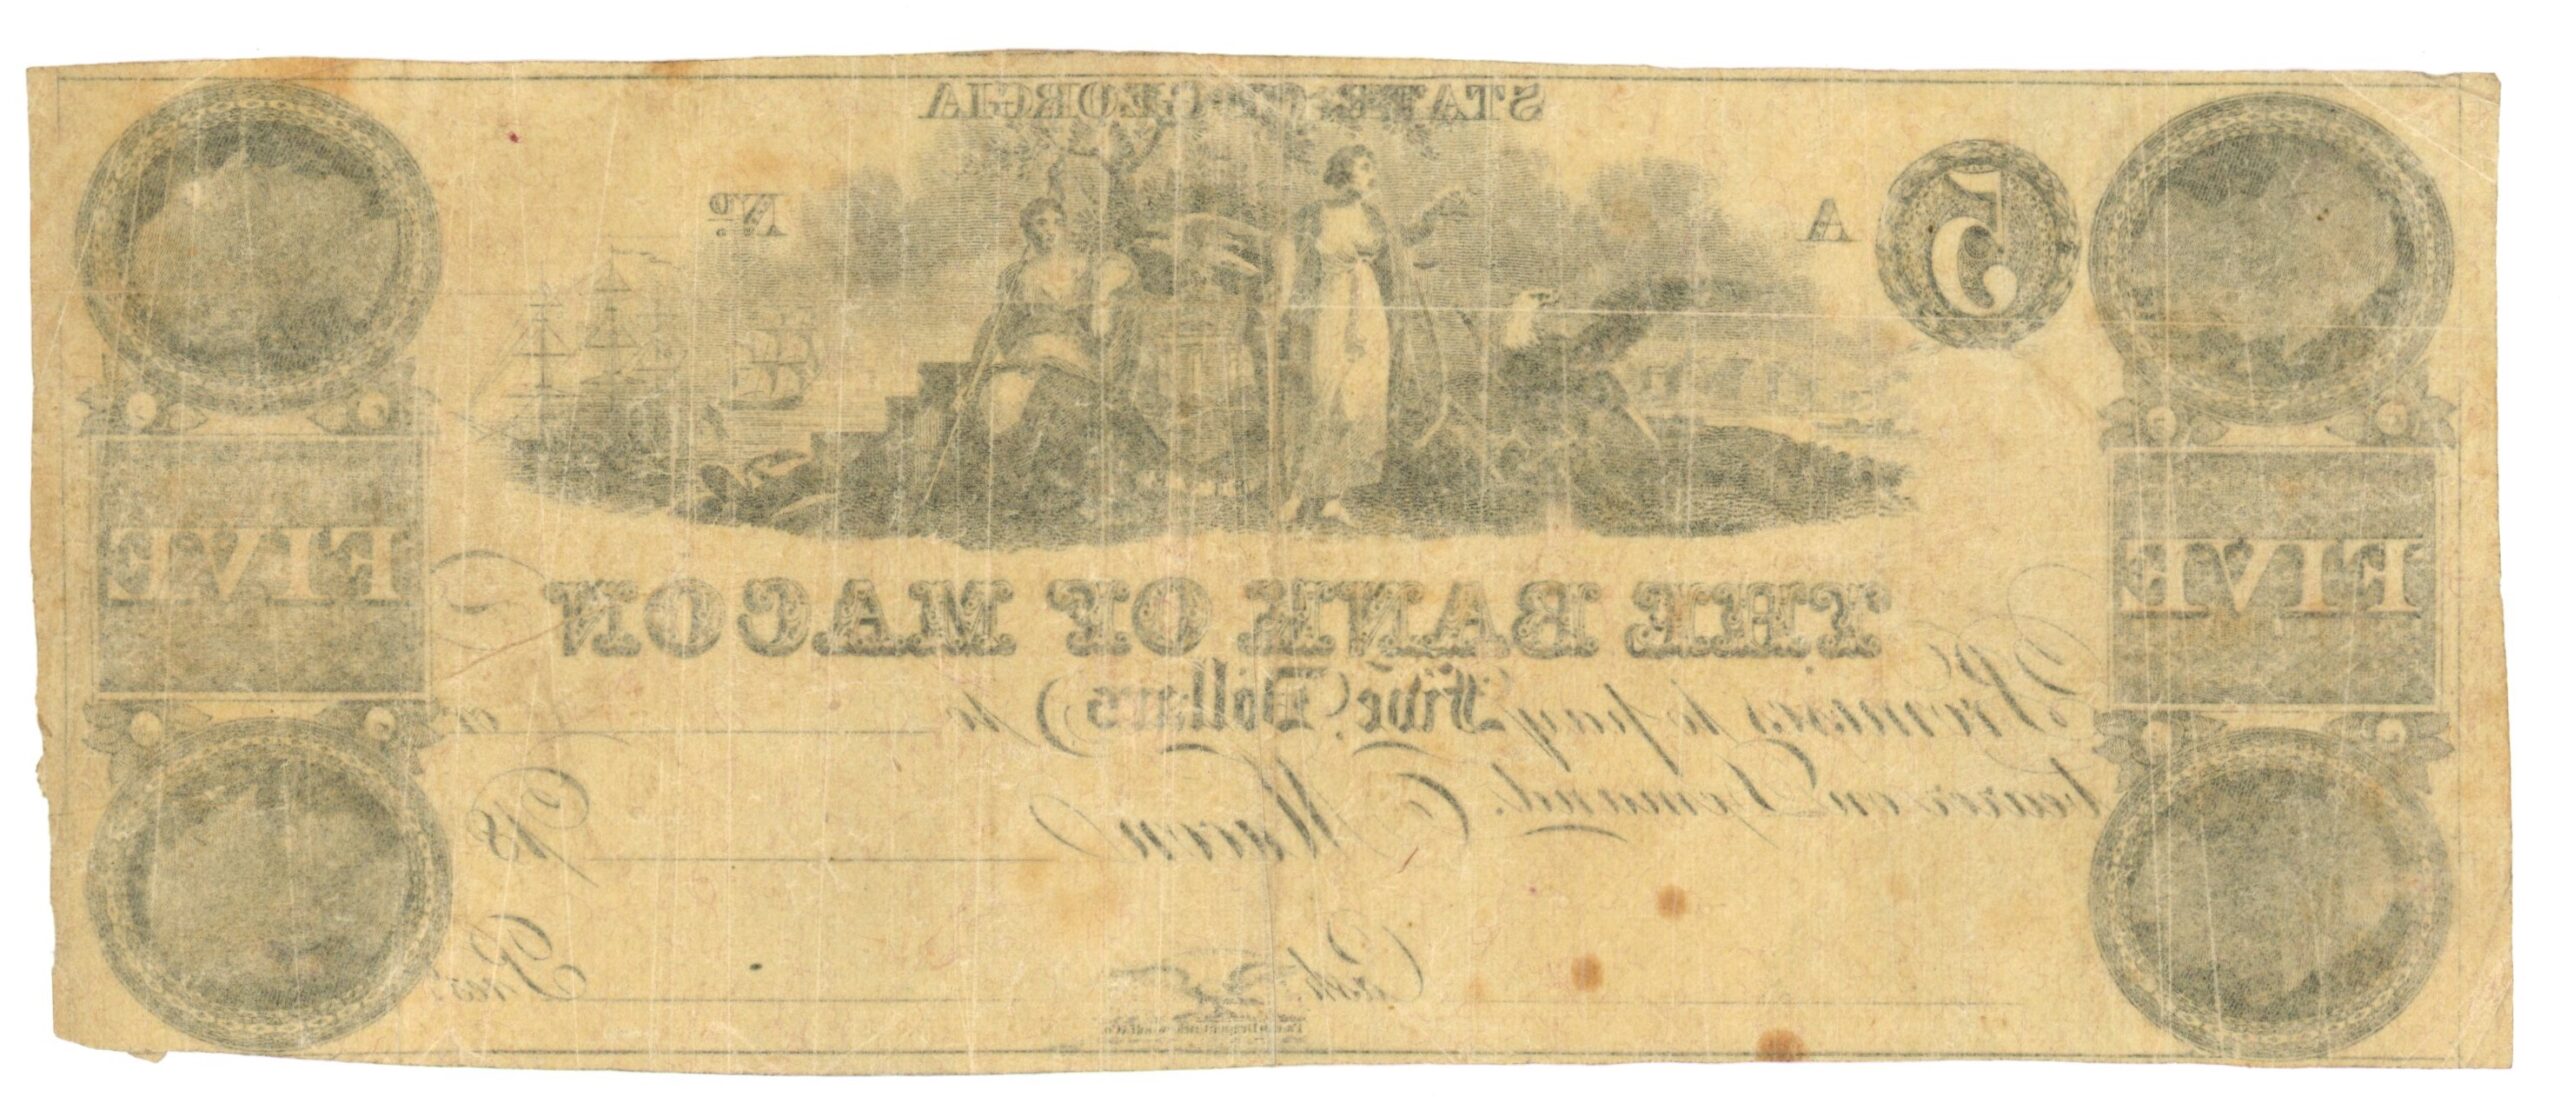 STATE OF GEORGIA
No
A
5
FIVE
FIVE
THE BANK OF MACON
Promises to pay Five Dollars to or
bearer on Demand. Macon 18
Cash. Prest.